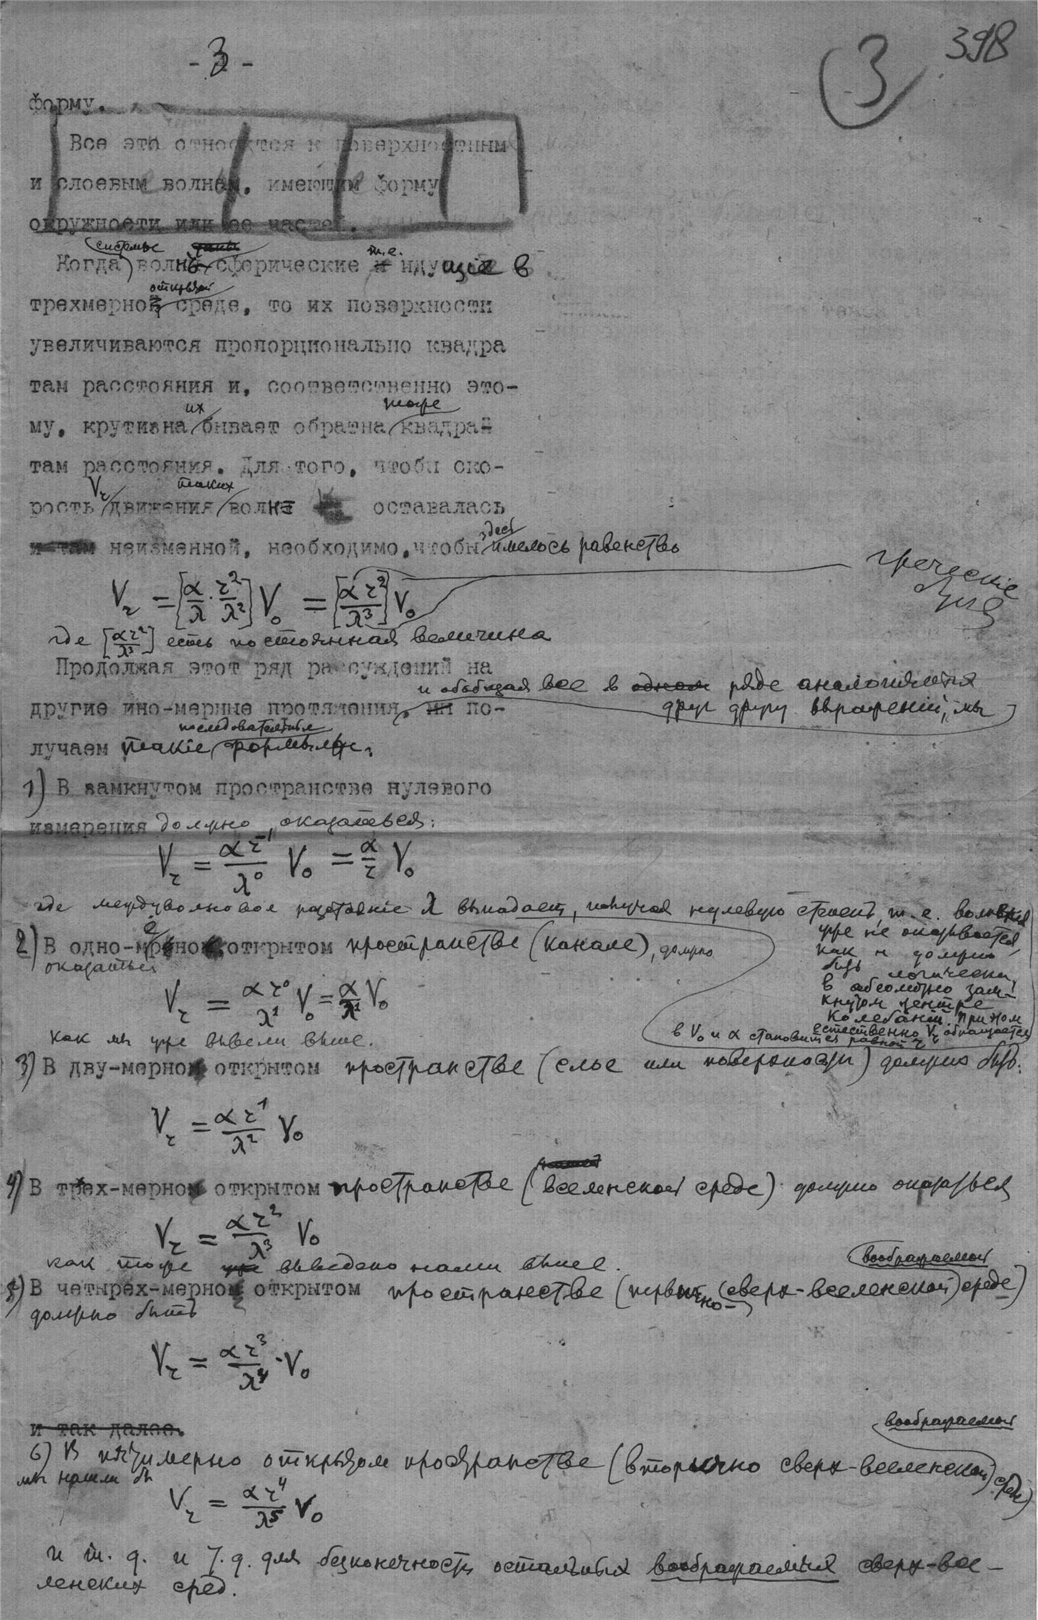 - 3 -
3
398
форму.
Все это относятся к поверхностным
и слоевым волнам, имеющим форму
окружности или ее частей.
системы
Когда волны сферические т.е. идущие в
открытой
трехмерной среде, то их поверхности
увеличиваются пропорционально квадра
там расстояния и, соответственно это-
их тоже
му, крутизна бывает обратна квадра
там расстояния. Для того, чтобы ско-
Vr таких
рость движения волн оставалась
здесь
и там неизменной, необходимо, чтобы имелось равенство
Vr = [α/λ · r²/λ²] V₀ = [αr²/λ³] V₀
греческие
где [αr²/λ³] есть постоянная величина
Продолжая этот ряд рассуждений на
и обобщая все в одном ряде аналогияется
другие ино-мерные протяжения, по-
друг другу выражений, мы
последовательные
лучаем такие формулы:
1) В замкнутом пространстве нулевого
измерения должно оказаться:
Vr = αr⁻¹/λ⁰ V₀ = α/r V₀
где междуволновое расстояніе λ выпадает, получая нулевую степень, т.е. волны
уже не оказывается,
как и должно
быть логически,
в абсолютно зам-
кнутом центре
колебаній. При том
естественно Vr обращается
в V₀ и α становится равной r
2) В одно-мерно открытом пространстве (канале), должно
оказаться
Vr = αr⁰/λ¹ V₀ = α/λ¹ V₀
как мы уже вывели выше.
3) В дву-мерно открытом пространстве (слое или поверхности) должно быть:
Vr = αr¹/λ² V₀
4) В трех-мерно открытом пространстве (вселенской среде) должно оказаться
Vr = αr²/λ³ V₀
как тоже уже выведено нами выше.
воображаемой
5) В четырех-мерно открытом пространстве (первично-сверх-вселенской среде)
должно быть
Vr = αr³/λ⁴ · V₀
и так далее.
воображаемой
6) В пятимерно открытом пространстве (вторично сверх-вселенской среде)
мы нашли бы
Vr = αr⁴/λ⁵ V₀
и т. д. и т. д. для безконечности остальных воображаемых сверх-все-
ленских сред.